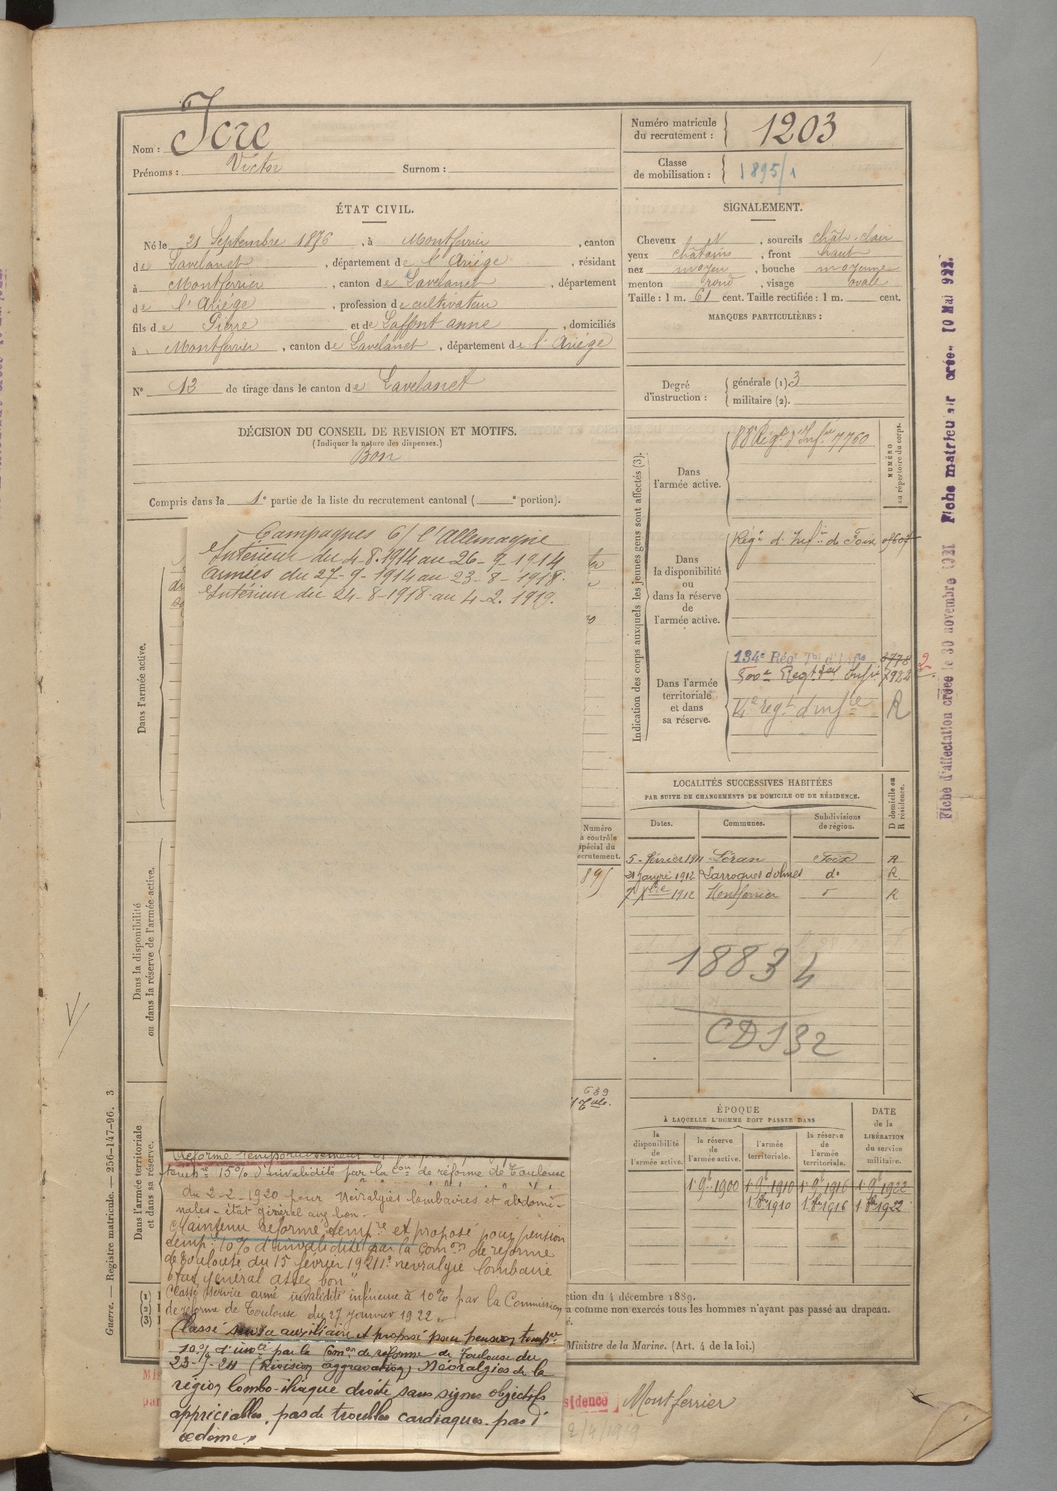 Nom : Icre
Prénoms : Victor Surnom :
Numéro matricule
du recrutement : 1203
Classe
de mobilisation : 1895/1
ÉTAT CIVIL.
Né le 21 Septembre 1876, à Montferrier, canton
de Lavelanet, département de l'Ariège, résidant
à Montferrier, canton de Lavelanet, département
de l'Ariége, profession de cultivateur
fils de Pierre et de Laffont anne, domiciliés
à Montferrier, canton de Lavelanet, département de l'Ariége
N° 13 de tirage dans le canton de Lavelanet
SIGNALEMENT.
Cheveux , sourcils chât. clair
yeux châtains, front haut
nez moyen, bouche moyenne
menton rond, visage ovale
Taille : 1 m. 61 cent. Taille rectifiée : 1 m. cent.
MARQUES PARTICULIÈRES :
Degré
d'instruction :
générale (1) 3
militaire (2).
DÉCISION DU CONSEIL DE REVISION ET MOTIFS.
(Indiquer la nature des dispenses.)
Bon
Compris dans la 1e partie de la liste du recrutement cantonal ( e portion).
Campagnes C/ l'Allemagne
Intérieur du 4-8-1914 au 26-9-1914
Armées du 27-9-1914 au 23-8-1918.
Intérieur du 24-8-1918 au 4-2-1919.
Dans l'armée active.
Dans la disponibilité
ou dans la réserve de l'armée active.
Dans l'armée territoriale
et dans sa réserve.
Numéro
contrôle
spécial du
recrutement.
895
Réforme temporairement et
temp.re 15% d'invalidité par la Con de réforme de Toulouse
du 2-2-1920 pour Névralgies lombaires et abdomi-
nales - état général ass. bon.
Maintenu réforme temp.re et proposé pour pension
temp. 10% d'invalidité par la Com.on de réforme
de Toulouse du 15 février 1921 1° nevralgie lombaire
état général assez bon"
Classé service armé invalidité inférieure à 10% par la Commission
de réforme de Toulouse du 27 janvier 1922
Classé service auxiliaire et proposé pour pension temp.re
10% d'inv.té par la Com.on de réforme de Toulouse du
(Révision aggravation) Névralgies de la
région lombo-iliaque droite sans signes objectifs
appréciables, pas de troubles cardiaques, pas d'
œdème"
Indication des corps auxquels les jeunes gens sont affectés (3).
NUMÉRO
au répertoire du corps.
Dans
l'armée active.
88e Régt d'Infie 7760
Dans
la disponibilité
ou
dans la réserve
de
l'armée active.
Régt d'Infie de Foix
Dans l'armée
territoriale
et dans
sa réserve.
134e Régt
500e Régt
14e régt d'infie
R
LOCALITÉS SUCCESSIVES HABITÉES
PAR SUITE DE CHANGEMENTS DE DOMICILE OU DE RÉSIDENCE.
Dates. Communes. Subdivisions
de région. D domicile ou
R résidence.
5 février 1911 Léran Foix R
1912 Larroque d'olmes do R.
1912 Montferrier R
18834
CD132
ÉPOQUE
À LAQUELLE L'HOMME DOIT PASSER DANS
DATE
de la
LIBÉRATION
du service
militaire.
la
disponibilité
de l'armée active.
la réserve
de
l'armée active.
l'armée
territoriale.
la réserve
de
l'armée
territoriale.
1er 9bre 1900 1er 9bre 1910 1er 9bre 1916 1er 9bre 1922
1er 8bre 1910 1er 8bre 1916 1er 8bre 1922
ction du 4 décembre 1889.
comme non exercés tous les hommes n'ayant pas passé au drapeau.
Ministre de la Marine. (Art. 4 de la loi.)
sidence Montferrier
2/4/1919
Guerre. — Registre matricule. — 256-147-96. 3
Fiche d'affectation créée le 30 novembre 1921 Fiche matricule créée 10 Mai 922.